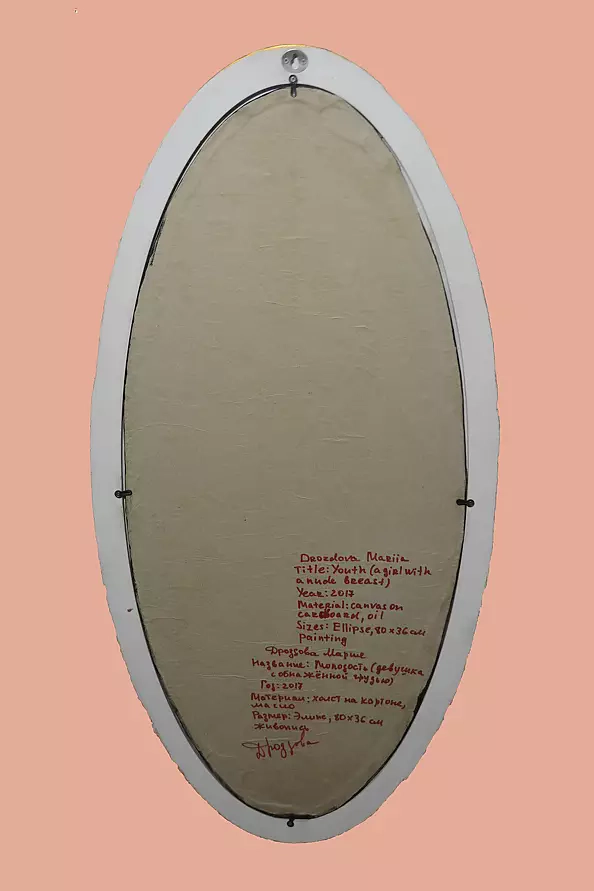 Drozdova Mariia
Title: Youth (a girl with
a nude breast)
Year: 2017
Material: canvas on
cardboard, oil
Sizes: Ellipse, 80x36 см
painting
Дроздова Марие
Название: Молодость (девушка
с обнажённой грудью)
Год: 2017
Материал: холст на картоне,
масло
Размер: Элипс, 80x36 см
живопись
Дроздова